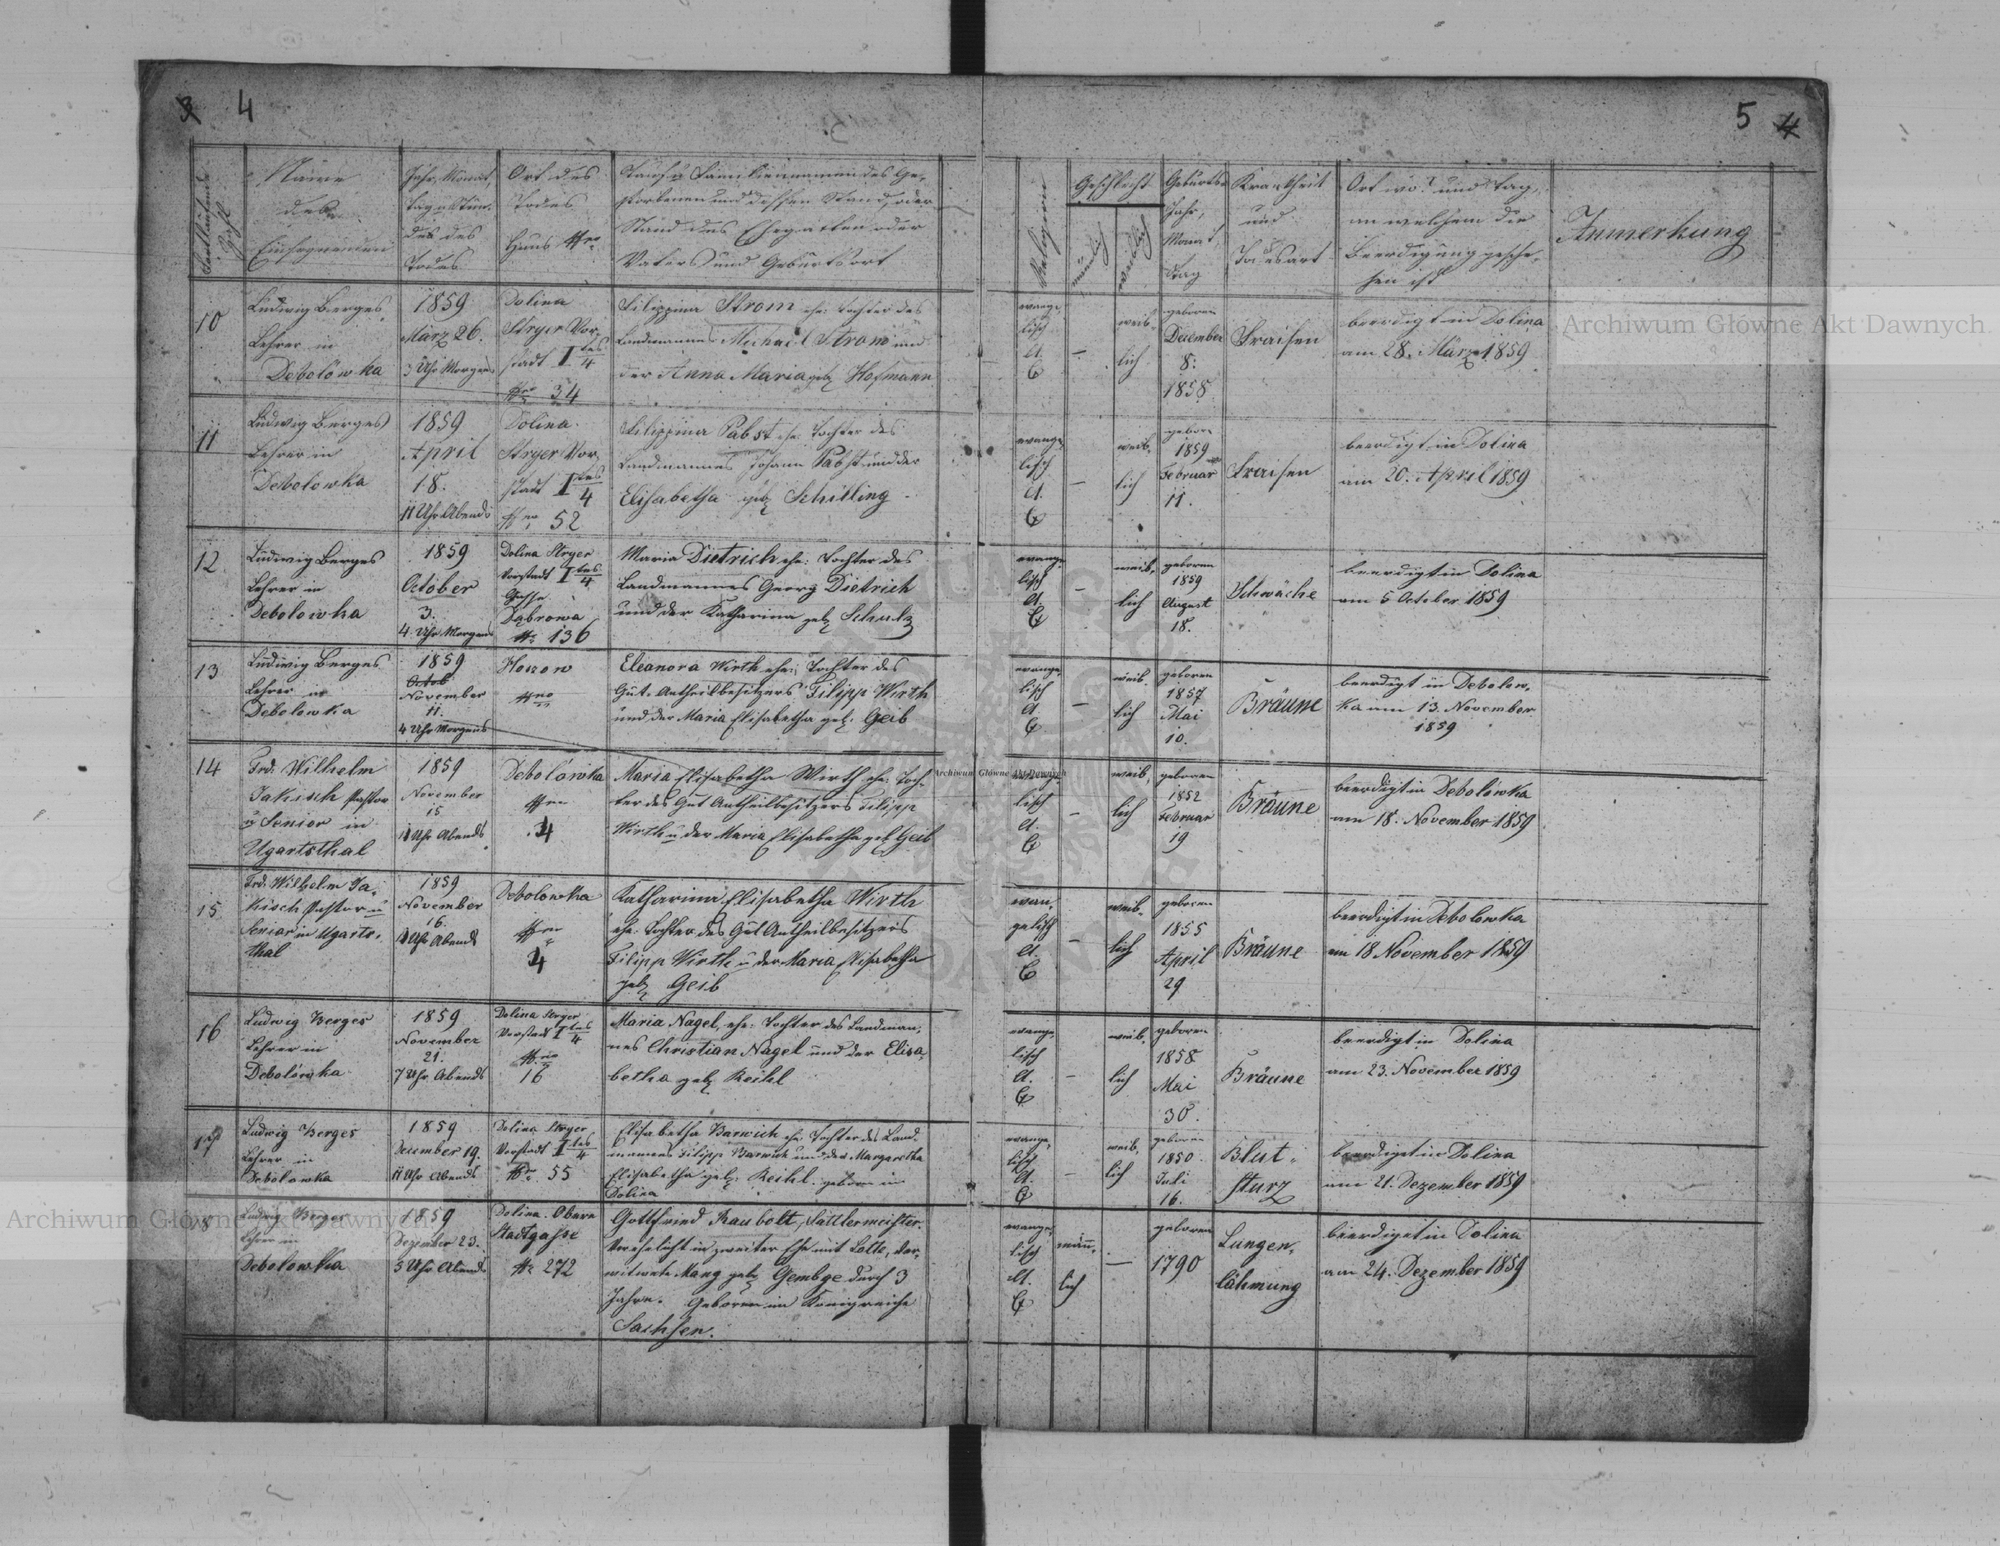 3 4
5 4
Fortlaufende Zahl
Name
des
Einsegnenden
Jahr, Monat,
Tag u Stun-
de des
Todes
Ort des
Todes
Haus Nro
Tauf u Familiennamen des Ge-
storbenen und dessen Stand, oder
Stand des Ehegatten oder
Vaters und Geburtsort
Religion
Geschlecht
männlich
weiblich
Geburts-
Jahr,
Monat,
Tag
Krankheit
und
Todesart
Ort wo? und Tag,
an welchem die
Beerdigung gesche-
hen ist
Anmerkung
10
Ludwig Berges,
Lehrer in
Debolówka
1859
März 26.
3 Uhr Morgens
Dolina
Stryer Vor-
stadt Ites/4
Nro 34
Filippina Strom ehe: Tochter des
Landmannes Michael Strom und
der Anna Maria geb. Hofmann
evange-
lisch
A.
C
–
weib-
lich
geboren
December
8.
1858
Fraisen
beerdigt in Dolina
am 28. März 1859
11
Ludwig Berges
Lehrer in
Debolowka
1859
April
18.
11 Uhr Abends
Dolina.
Stryer Vor-
stadt Ites/4
Nro 52
Filippina Pabst ehe: Tochter des
Landmannes Johann Pabst und der
Elisabetha geb. Schilling
evange-
lisch
A.
C
–
weib-
lich
geboren
1859
Februar
11.
Fraisen
beerdigt in Dolina
am 20. April 1859
12
Ludwig Berges
Lehrer in
Debolowka
1859
October
3.
4 Uhr Morgens
Dolina Stryer
Vorstadt Ites/4
Gasse
Dąbrowa
N. 136
Maria Dietrich ehe: Tochter des
Landmannes Georg Dietrich
und der Katharina geb. Schulz
evange-
lisch
A.
C
–
weib-
lich
geboren
1859
August
18.
Schwäche
beerdigt in Dolina
am 5 October 1859
13
Ludwig Berges
Lehrer in
Debolowka
1859
Octob
November
11.
4 Uhr Morgens
Hoszow
Nro
Eleanora Wirth ehe: Tochter des
Gut-Antheilbesitzers Filipp Wirth
und der Maria Elisabetha geb. Geib
evange-
lisch
A.
C
–
weib-
lich
geboren
1857
Mai
10.
Bräune
beerdigt in Debolow-
ka am 13. November
1859
14
Frd: Wilhelm
Jakisch Pastor
u Senior in
Ugartsthal
1859
November
15
11 Uhr Abends
Debolówka
Nro
4
Maria Elisabetha Wirth ehe: Toch-
ter des Gut Antheilbesitzers Filipp
Wirth u der Maria Elisabetha geb. Geib
evange-
lisch
A.
C
–
weib-
lich
geboren
1852
Februar
19
Bräune
beerdigt in Debolowka
am 18. November 1859
15
Frd: Wilhelm Ja-
kisch Pastor u
Senior in Ugarts-
thal
1859
November
16.
11 Uhr Abends
Debolowka
Nro
4
Katharina Elisabetha Wirth
ehe: Tochter des Gut Antheilbesitzers
Filipp Wirth u der Maria Elisabetha
geb. Geib
evan-
gelisch
A.
C
–
weib-
lich
geboren
1855
April
29
Bräune
beerdigt in Debolowka
am 18 November 1859
16
Ludwig Berges
Lehrer in
Debolówka
1859
November
21.
7 Uhr Abends
Dolina Stryer
Vorstadt Ites/4
Nro
16
Maria Nagel, ehe: Tochter des Landman-
nes Christian Nagel und der Elisa-
betha geb. Reihl
evange-
lisch
A.
C
–
weib-
lich
geboren
1858
Mai
30.
Bräune
beerdigt in Dolina
am 23. November 1859
17
Ludwig Berges
Lehrer in
Debolowka
1859
December 19.
11 Uhr Abends
Dolina Stryer
Vorstadt Ites/4
Nro 55
Elisabetha Barwich ehe Tochter des Land-
mannes Filipp Barwich und der Margaretha
Elisabetha geb. Reihl. geboren in
Dolina
evange-
lisch
A.
C
–
weib-
lich
geboren
1850
Juli
16.
Blut-
sturz
beerdiget in Dolina
am 21. Dezember 1859
18
Ludwig Berges
Lehrer in
Debolowka
1859
Dezember 23.
5 Uhr Abends
Dolina. Obere
Stadtgasse
N. 272
Gottfried Raubolt, Sattlermeister.
Verehelicht in zweiter Ehe mit Lotte, ver-
witwete Mang geb. Gembge durch 3
Jahre. Geboren im Königreiche
Sachsen.
evange-
lisch
A.
C
männ-
lich
–
geboren
1790
Lungen-
lähmung
beerdiget in Dolina
am 24. Dezember 1859
Archiwum Główne Akt Dawnych
Archiwum Główne Akt Dawnych
Archiwum Główne Akt Dawnych